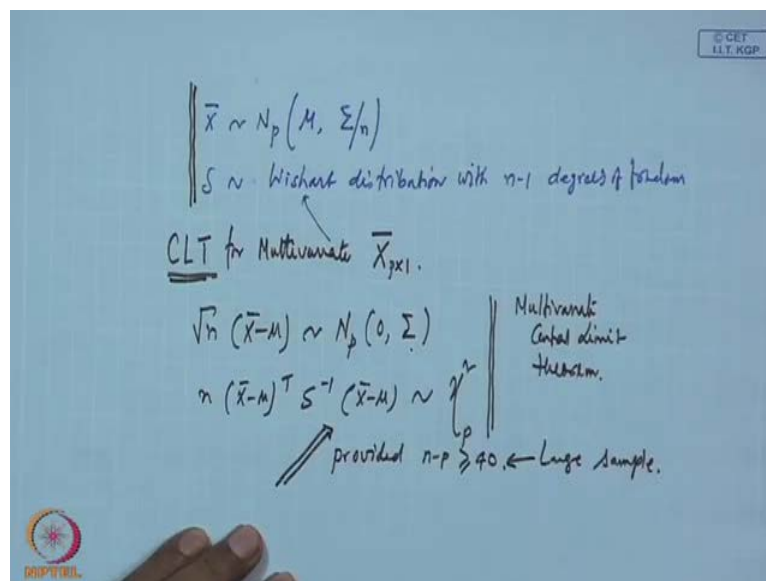 © CET
I.I.T. KGP
X̄ ~ Np (M, Σ/n)
S ~ Wishart distribution with n-1 degrees of freedom
CLT for Multivariate X̄p×1.
√n (x̄-μ) ~ Np (0, Σ)
n (x̄-μ)ᵀ S⁻¹ (x̄-μ) ~ χ²p
Multivariate
Central Limit
theorem.
provided n-p ≥ 40. ← Large sample.
NPTEL